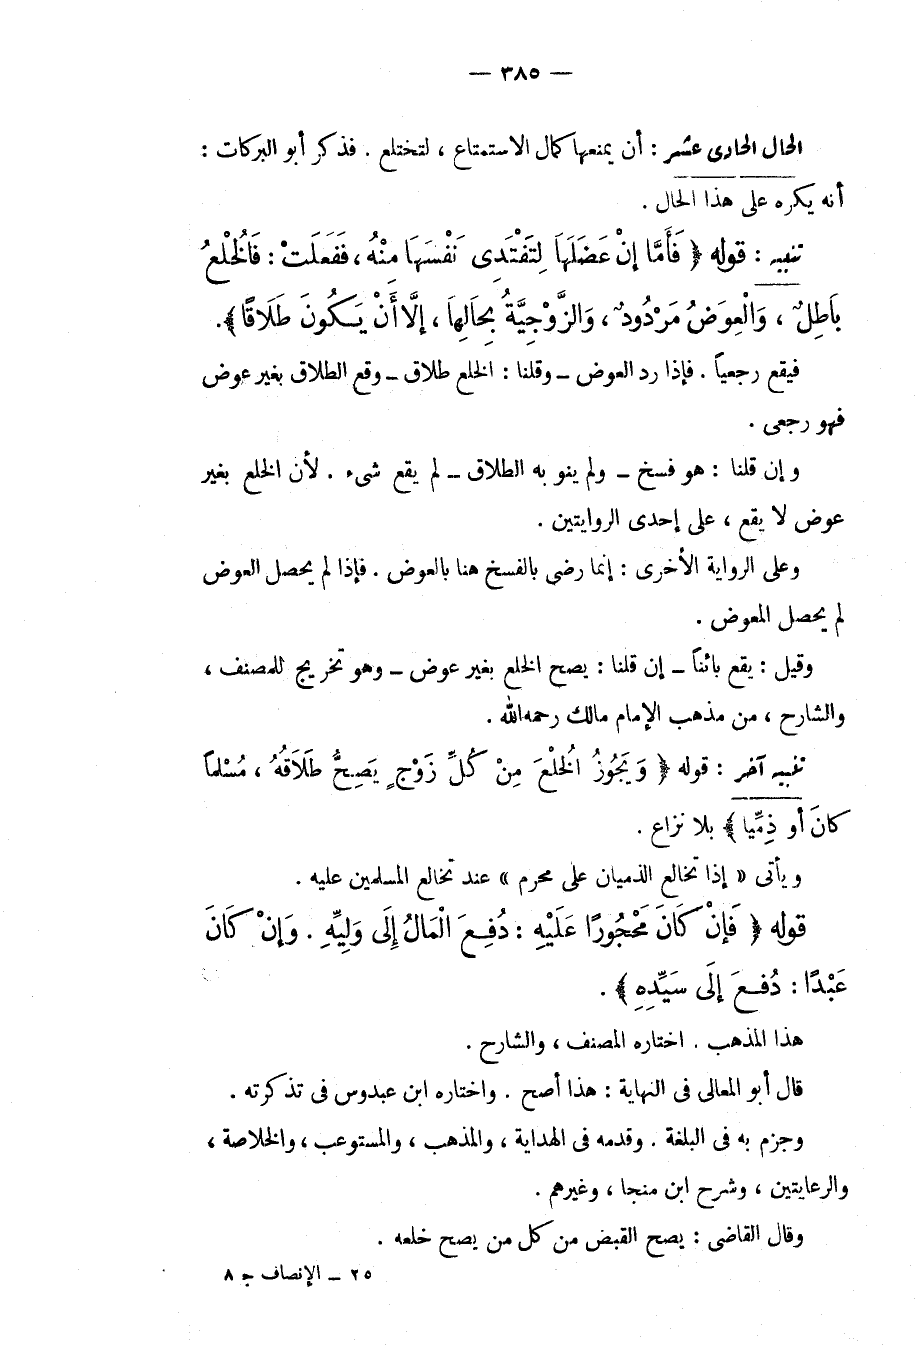 — ٣٨٥ —
الحال الحادى عشر : أن يمنعها كمال الاستمتاع ، لتختلع . فذكر أبو البركات :
أنه يكره على هذا الحال .
تنبيه : قوله ﴿ فَأَمَّا إِنْ عَضَلَهَا لِتَفْتَدِى نَفْسَهَا مِنْهُ ، فَفَعَلَتْ : فَالْخُلْعُ
بَاطِلٌ ، وَالْعِوَضُ مَرْدُودٌ ، وَالزَّوْجِيَّةُ بِحَالِهَا ، إِلَّا أَنْ يَكُونَ طَلَاقًا ﴾.
فيقع رجعياً . فإذا رد العوض – وقلنا : الخلع طلاق – وقع الطلاق بغير عوض
فهو رجعى .
وإن قلنا : هو فسخ – ولم ينو به الطلاق – لم يقع شىء . لأن الخلع بغير
عوض لا يقع ، على إحدى الروايتين .
وعلى الرواية الأخرى : إنما رضى بالفسخ هنا بالعوض . فإذا لم يحصل العوض
لم يحصل المعوض .
وقيل : يقع بائناً – إن قلنا : يصح الخلع بغير عوض – وهو تخريج للمصنف ،
والشارح ، من مذهب الإمام مالك رحمه الله .
تنبيه آخر : قوله ﴿ وَيَجُوزُ الْخُلْعَ مِنْ كُلِّ زَوْجٍ يَصِحُّ طَلَاقُهُ ، مُسْلِماً
كَانَ أو ذِمِّيا ﴾ بلا نزاع .
ويأتى « إذا تخالع الذميان على محرم » عند تخالع المسلمين عليه .
قوله ﴿ فَإِنْ كَانَ مَحْجُورًا عَلَيْهِ : دُفِعَ الْمَالُ إِلَى وَلِيِّهِ . وَإِنْ كَانَ
عَبْدًا : دُفِعَ إِلَى سَيِّدِهِ ﴾ .
هذا المذهب . اختاره المصنف ، والشارح .
قال أبو المعالى فى النهاية : هذا أصح . واختاره ابن عبدوس فى تذكرته .
وجزم به فى البلغة . وقدمه فى الهداية ، والمذهب ، والمستوعب ، والخلاصة ،
والرعايتين ، وشرح ابن منجا ، وغيرهم .
وقال القاضى : يصح القبض من كل من يصح خلعه .
٢٥ – الإنصاف ج ٨